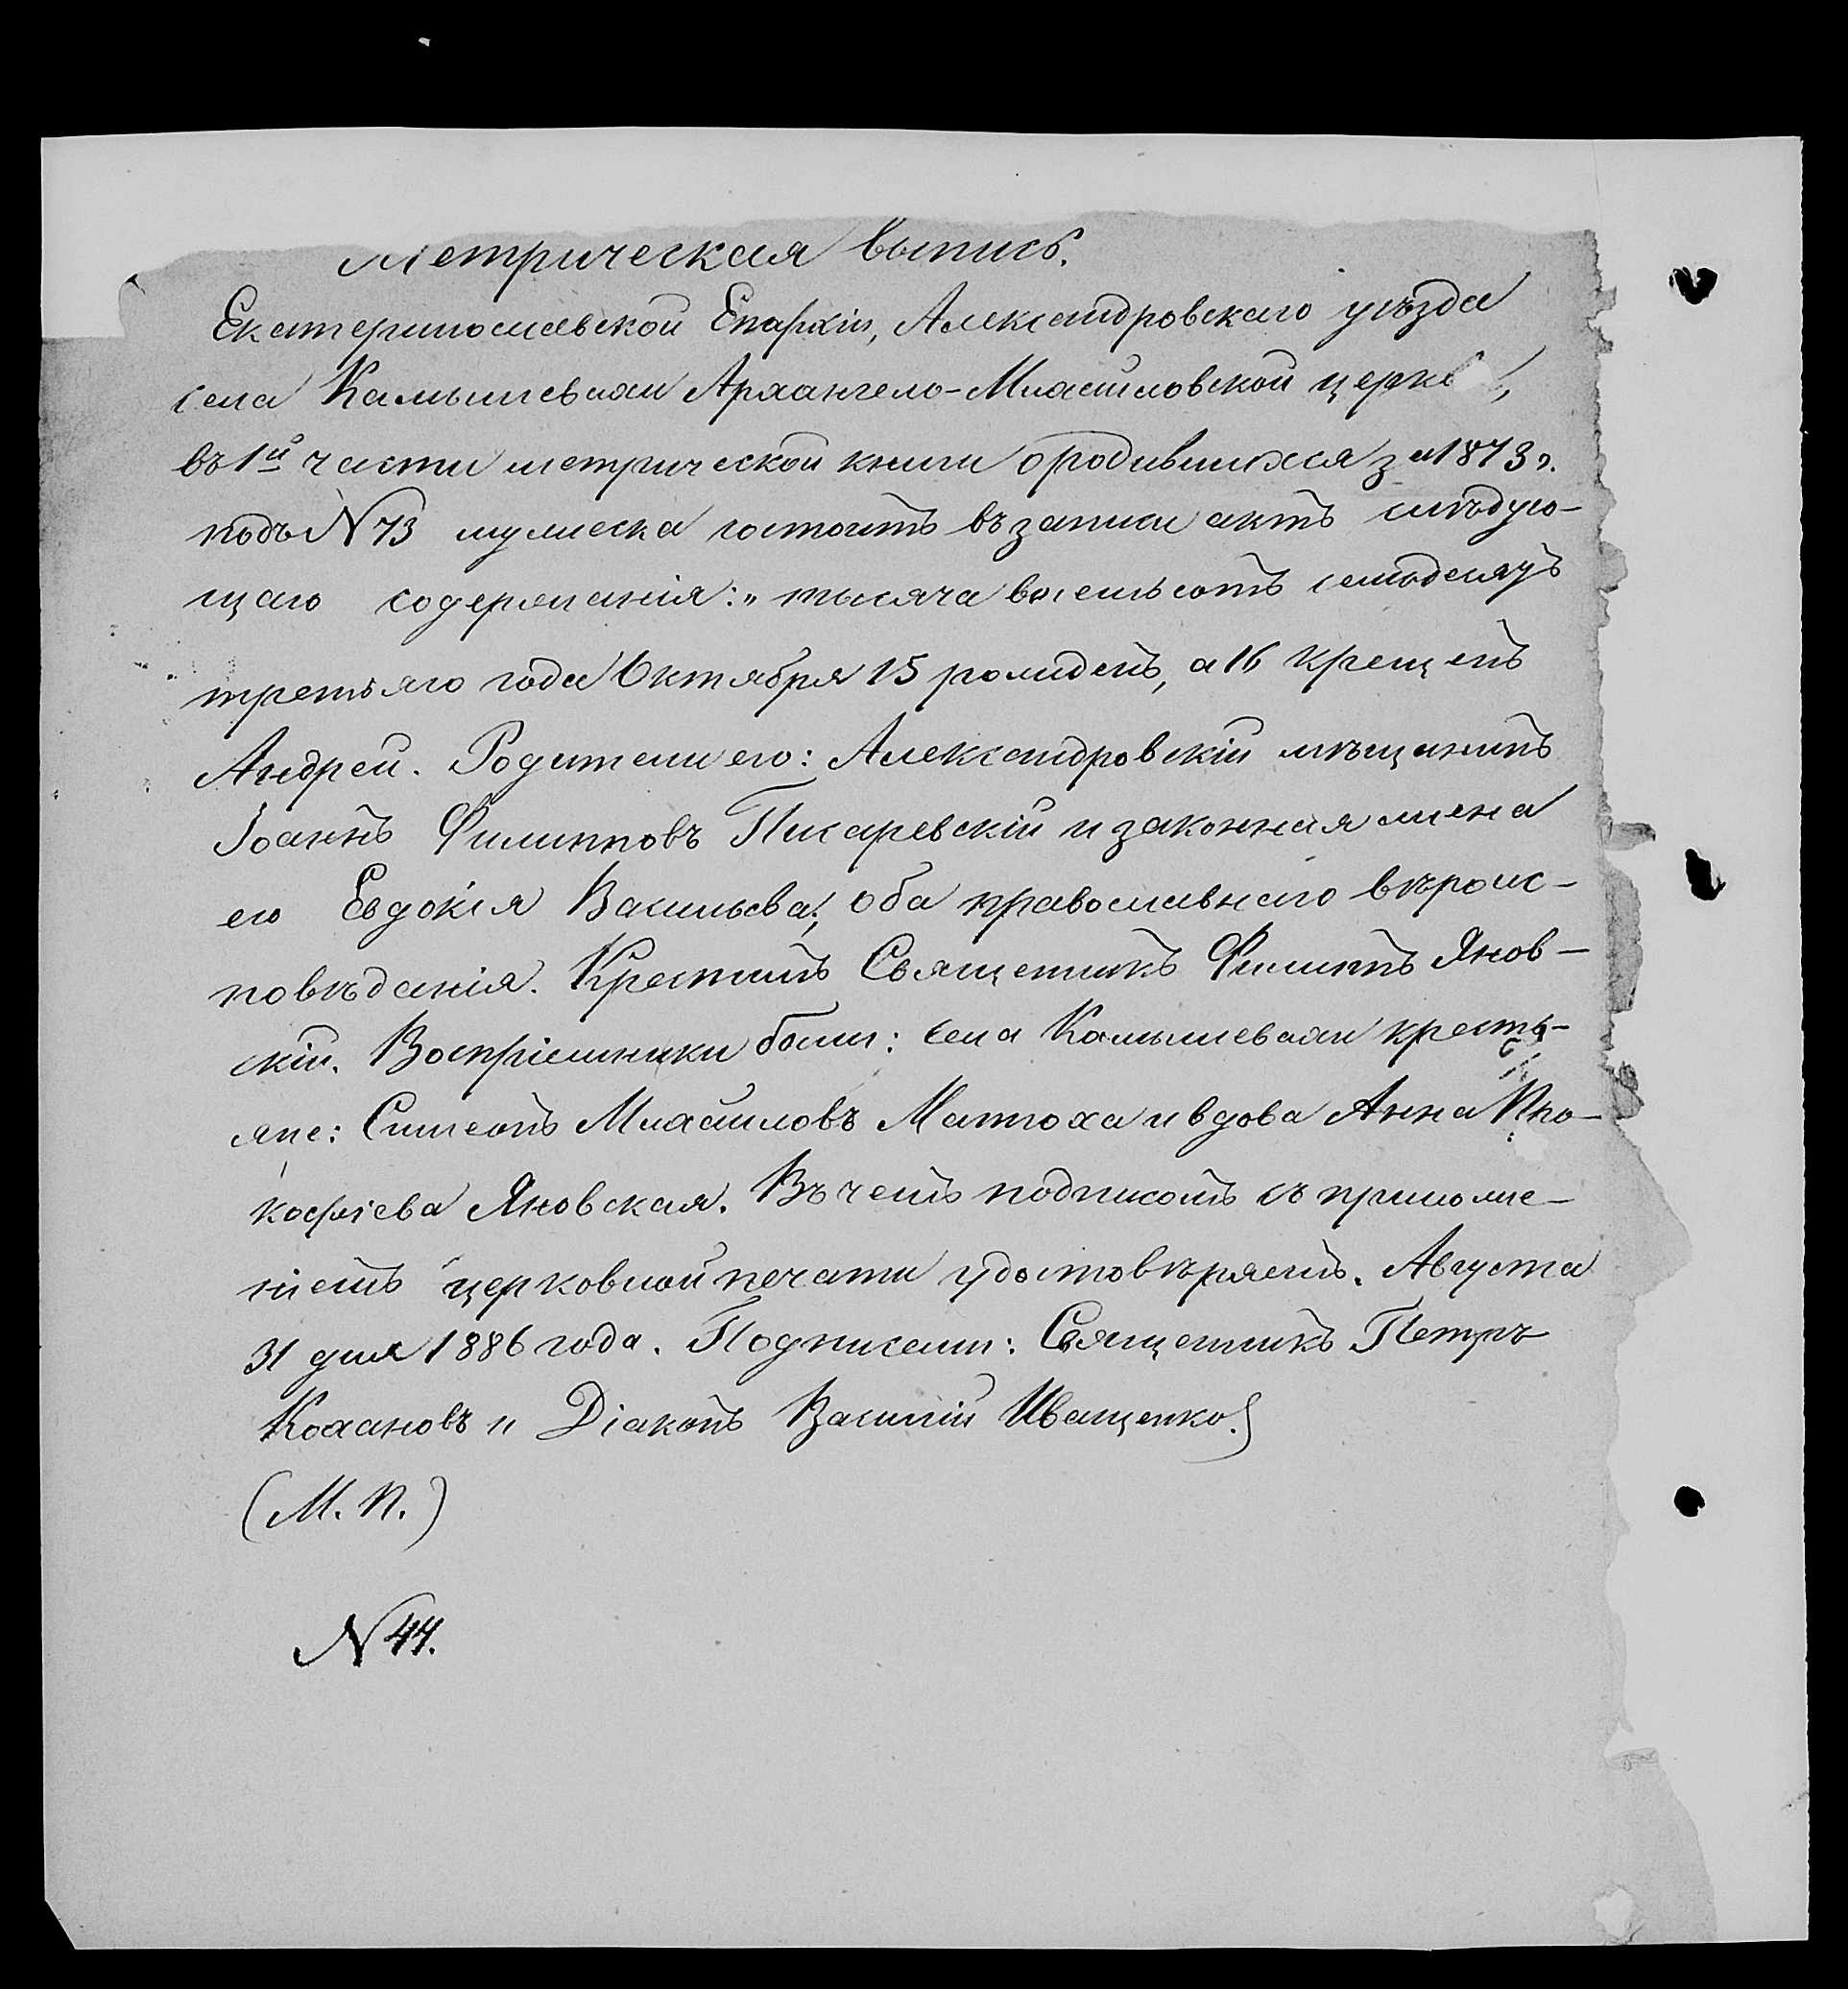 Метрическая выпись.
Екатеринославской Епархіи, Александровскаго уѣзда
села Камышевахи Архангело-Михайловской церкви,
въ 1й части метрической книги о родившихся за 1873 г.
подъ N 73 мужеска состоитъ въ записи актъ слѣдую-
щаго содержанія: „тысяча восемьсотъ семьдесятъ
третьяго года Октября 15 рожденъ, а 16 крещенъ
Андрей. Родители его: Александровскій мѣщанинъ
Іоаннъ Филипповъ Писаревскій и законная жена
его Евдокія Васильева, оба православнаго вѣроис-
повѣданія. Крестилъ Священникъ Филиппъ Янов-
скій. Воспріемники были: села Камышевахи кресть-
яне: Симеонъ Михайловъ Матюха и вдова Анна Про-
кофіева Яновская. Въ чемъ подписомъ съ приложе-
ніемъ церковной печати удостовѣряемъ. Августа
31 дня 1886 года. Подписали: Священникъ Петръ
Кохановъ и Діаконъ Василій Иващенко.
(М. П.)
N 44.